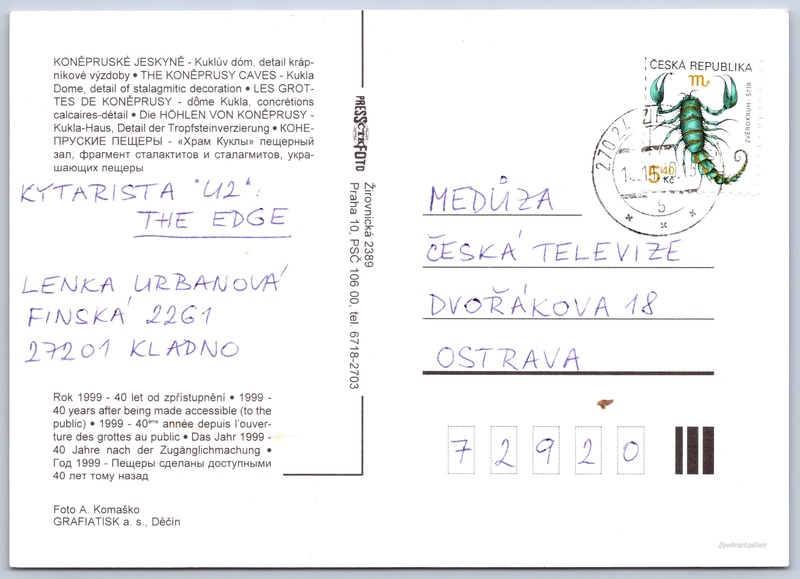 KONĚPRUSKÉ JESKYNĚ - Kuklův dóm, detail kráp-
níkové výzdoby • THE KONĚPRUSY CAVES - Kukla
Dome, detail of stalagmitic decoration • LES GROT-
TES DE KONĚPRUSY - dôme Kukla, concrétions
calcaires-détail • Die HÖHLEN VON KONĚPRUSY -
Kukla-Haus, Detail der Tropfsteinverzierung • КОНЕ-
ПРУСКИЕ ПЕЩЕРЫ - «Храм Куклы» пещерный
зал, фрагмент сталактитов и сталагмитов, укра-
шающих пещеры
KYTARISTA "U2":
THE EDGE
LENKA URBANOVÁ
FINSKÁ 2261
27201 KLADNO
Rok 1999 - 40 let od zpřístupnění • 1999 -
40 years after being made accessible (to the
public) • 1999 - 40ème année depuis l'ouver-
ture des grottes au public • Das Jahr 1999 -
40 Jahre nach der Zugänglichmachung •
Год 1999 - Пещеры сделаны доступными
40 лет тому назад
Foto A. Komaško
GRAFIATISK a. s., Děčín
PRESS ČTK FOTO
Žirovnická 2389
Praha 10, PSČ 106 00, tel. 6718-2703
ČESKÁ REPUBLIKA
ZVĚROKRUH - ŠTÍR
5,40
Kč
270 24
MEDŮZA
ČESKÁ TELEVIZE
DVOŘÁKOVA 18
OSTRAVA
7 2 9 2 0
//postcart.gallery